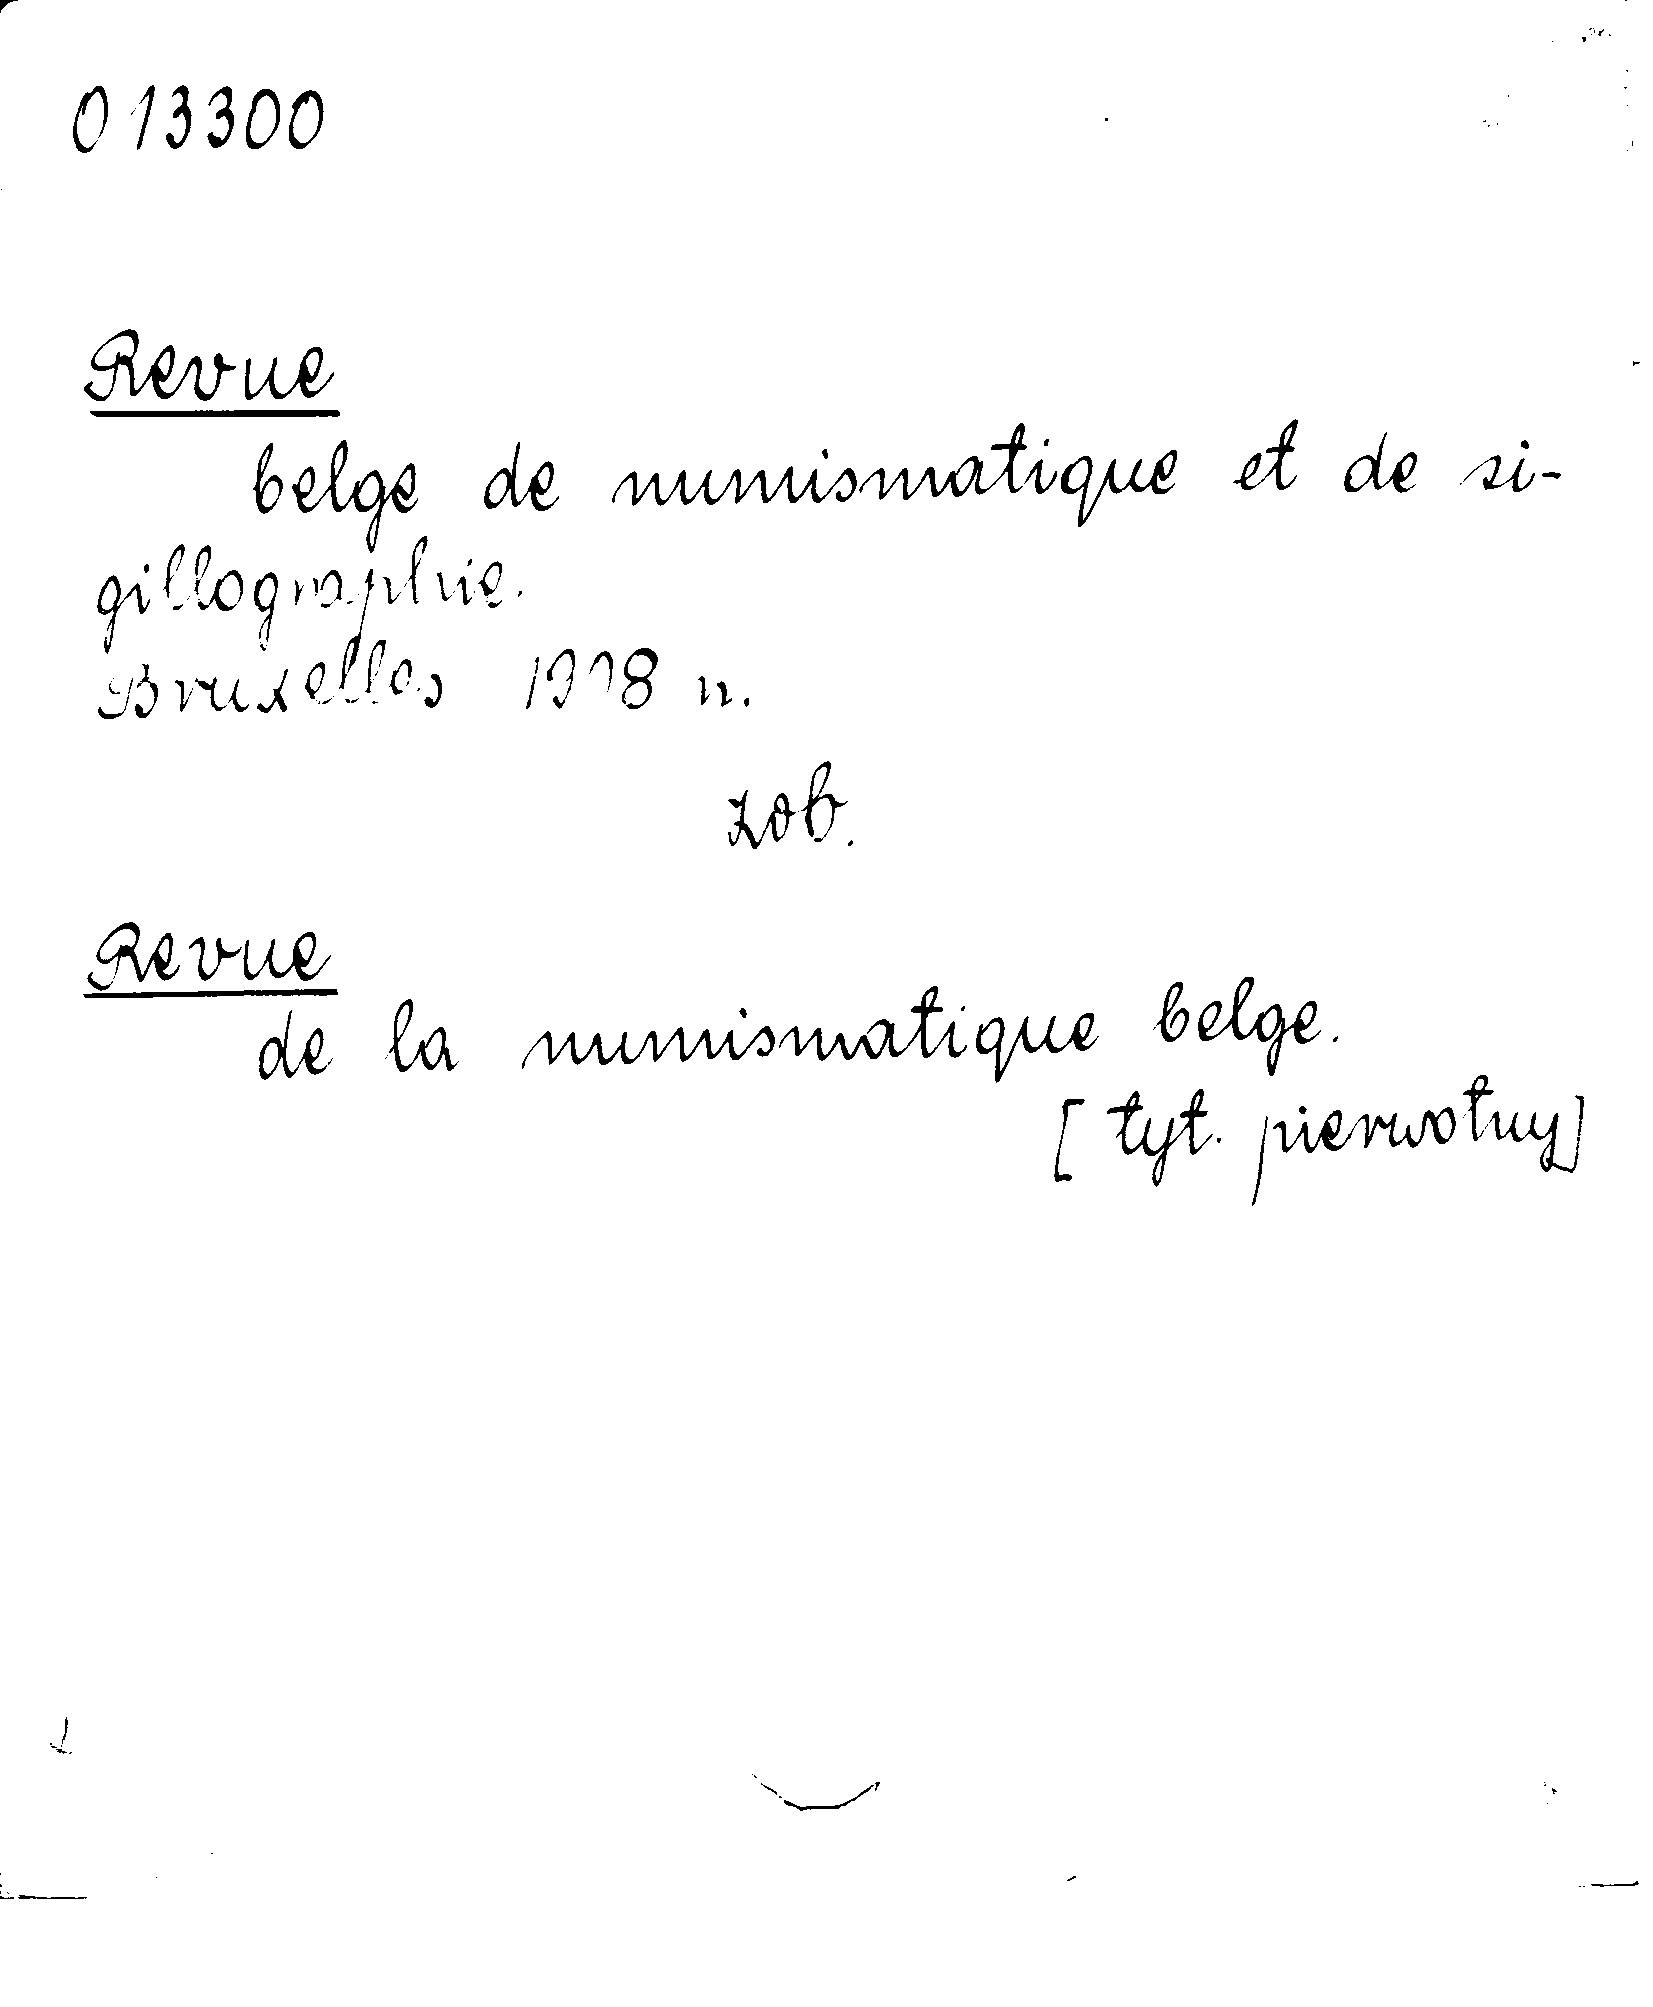 013300
Revue
belge de numismatique et de si-
gillographie.
Bruxelles n.
zob.
Revue
de la numismatique belge.
[tyt. pierwotny]